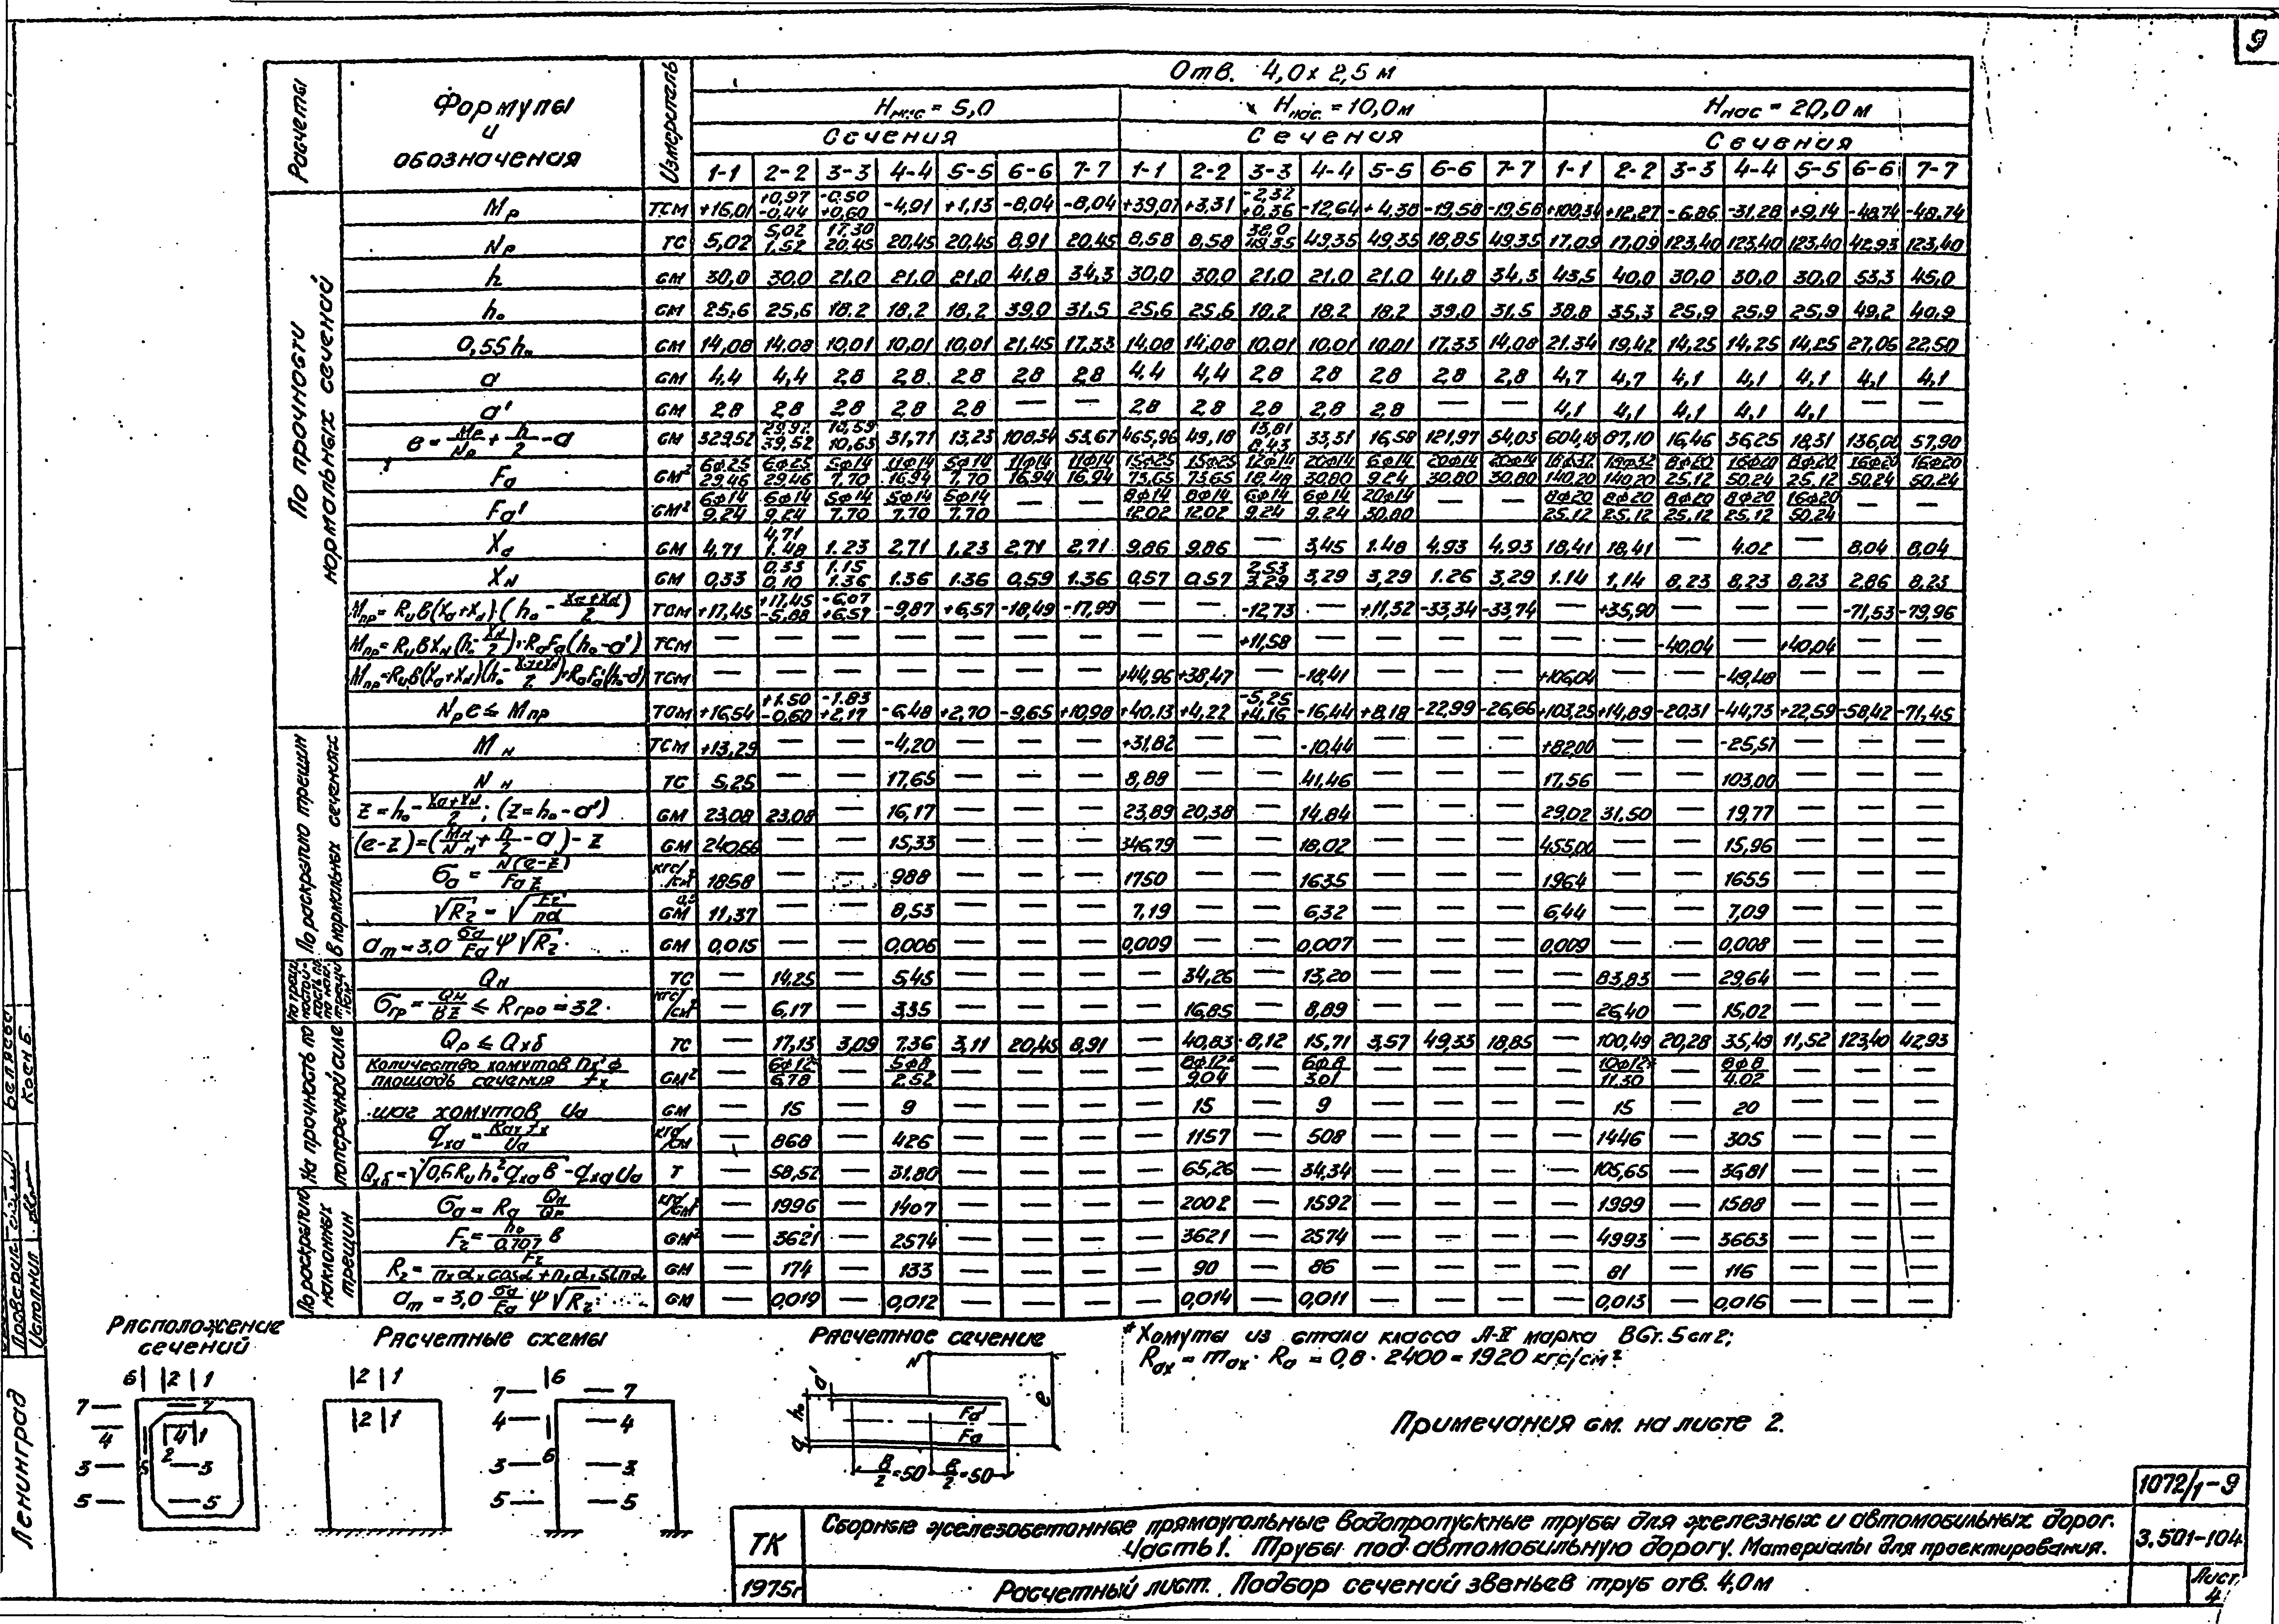 9
Расчеты | Формулы и обозначения | Измеритель | Отв. 4,0 x 2,5 м
Hнас = 5,0 | Hнас. = 10,0 м | Hнас = 20,0 м
Сечения | Сечения | Сечения
1-1 | 2-2 | 3-3 | 4-4 | 5-5 | 6-6 | 7-7 | 1-1 | 2-2 | 3-3 | 4-4 | 5-5 | 6-6 | 7-7 | 1-1 | 2-2 | 3-3 | 4-4 | 5-5 | 6-6 | 7-7
По прочности нормальных сечений
Mр | тсм | +16,01 | +0,97 -0,44 | -0,50 +0,60 | -4,91 | +1,13 | -8,04 | -8,04 | +39,07 | +3,31 | -2,32 +0,36 | -12,64 | +4,38 | -19,58 | -19,58 | +100,34 | +12,27 | -6,86 | -31,28 | +9,14 | -48,74 | -48,74
Nр | тс | 5,02 | 5,02 1,52 | 17,30 20,45 | 20,45 | 20,45 | 8,91 | 20,45 | 8,58 | 8,58 | 38,0 49,35 | 49,35 | 49,35 | 18,85 | 49,35 | 17,09 | 17,09 | 123,40 | 123,40 | 123,40 | 42,93 | 123,40
h | см | 30,0 | 30,0 | 21,0 | 21,0 | 21,0 | 41,8 | 34,3 | 30,0 | 30,0 | 21,0 | 21,0 | 21,0 | 41,8 | 34,3 | 43,5 | 40,0 | 30,0 | 30,0 | 30,0 | 53,3 | 45,0
h₀ | см | 25,6 | 25,6 | 18,2 | 18,2 | 18,2 | 39,0 | 31,5 | 25,6 | 25,6 | 18,2 | 18,2 | 18,2 | 39,0 | 31,5 | 38,8 | 35,3 | 25,9 | 25,9 | 25,9 | 49,2 | 40,9
0,55h₀ | см | 14,08 | 14,08 | 10,01 | 10,01 | 10,01 | 21,45 | 17,33 | 14,08 | 14,08 | 10,01 | 10,01 | 10,01 | 17,33 | 14,08 | 21,34 | 19,42 | 14,25 | 14,25 | 14,25 | 27,06 | 22,50
a | см | 4,4 | 4,4 | 2,8 | 2,8 | 2,8 | 2,8 | 2,8 | 4,4 | 4,4 | 2,8 | 2,8 | 2,8 | 2,8 | 2,8 | 4,7 | 4,7 | 4,1 | 4,1 | 4,1 | 4,1 | 4,1
a' | см | 2,8 | 2,8 | 2,8 | 2,8 | 2,8 | — | — | 2,8 | 2,8 | 2,8 | 2,8 | 2,8 | — | — | 4,1 | 4,1 | 4,1 | 4,1 | 4,1 | — | —
e = Mр/Nр + h/2 - a | см | 329,52 | 29,92 39,52 | 10,59 10,63 | 31,71 | 13,23 | 108,54 | 53,67 | 465,96 | 49,18 | 13,81 8,43 | 33,31 | 16,58 | 121,97 | 54,03 | 604,18 | 87,10 | 16,46 | 36,25 | 18,31 | 136,00 | 57,90
Fa | см² | 6ф25 29,46 | 6ф25 29,46 | 5ф14 7,70 | 11ф14 16,94 | 5ф14 7,70 | 11ф14 16,94 | 11ф14 16,94 | 15ф25 73,65 | 15ф25 73,65 | 12ф14 18,48 | 20ф14 30,80 | 6ф14 9,24 | 20ф14 30,80 | 20ф14 30,80 | 18ф32 140,20 | 18ф32 140,20 | 8ф20 25,12 | 16ф20 50,24 | 8ф20 25,12 | 16ф20 50,24 | 16ф20 50,24
Fa' | см² | 6ф14 9,24 | 6ф14 9,24 | 5ф14 7,70 | 5ф14 7,70 | 5ф14 7,70 | — | — | 8ф14 12,02 | 8ф14 12,02 | 6ф14 9,24 | 6ф14 9,24 | 20ф14 30,80 | — | — | 8ф20 25,12 | 8ф20 25,12 | 8ф20 25,12 | 8ф20 25,12 | 16ф20 50,24 | — | —
Xa | см | 4,71 | 4,71 1,48 | 1,23 | 2,71 | 1,23 | 2,71 | 2,71 | 9,86 | 9,86 | — | 3,45 | 1,48 | 4,93 | 4,93 | 18,41 | 18,41 | — | 4,02 | — | 8,04 | 8,04
XN | см | 0,33 | 0,33 0,10 | 1,15 1,36 | 1,36 | 1,36 | 0,59 | 1,36 | 0,57 | 0,57 | 2,53 3,29 | 3,29 | 3,29 | 1,26 | 3,29 | 1,14 | 1,14 | 8,23 | 8,23 | 8,23 | 2,86 | 8,23
Mпр = RиB(Xa+XN)·(h₀ - (Xa+XN)/2) | тсм | +17,45 | +17,45 -5,88 | -6,07 +6,57 | -9,87 | +6,57 | -18,49 | -17,99 | — | — | -12,73 | — | +11,32 | -33,34 | -33,74 | — | +35,90 | — | — | — | -71,53 | -79,96
Mпр = RиBXN(h₀ - XN/2)+RaFa(h₀-a') | тсм | — | — | — | — | — | — | — | — | — | +11,58 | — | — | — | — | — | — | -40,04 | — | +40,04 | — | —
Mпр = RиB(Xa+XN)(h₀ - (Xa+XN)/2)+RaFa'(h₀-a') | тсм | — | — | — | — | — | — | — | +44,96 | +38,47 | — | -18,41 | — | — | — | +106,04 | — | — | -49,48 | — | — | —
Nр e ≤ Mпр | тсм | +16,54 | +1,50 -0,60 | -1,83 +2,17 | -6,48 | +2,70 | -9,65 | +10,98 | +40,13 | +4,22 | -5,25 +4,16 | -16,44 | +8,18 | -22,99 | -26,66 | +103,25 | +14,89 | -20,31 | -44,73 | +22,59 | -58,42 | -71,45
По раскрытию трещин в нормальных сечениях
Mн | тсм | +13,29 | — | — | -4,20 | — | — | — | +31,82 | — | — | -10,44 | — | — | — | +82,00 | — | — | -25,57 | — | — | —
Nн | тс | 5,25 | — | — | 17,65 | — | — | — | 8,88 | — | — | 41,46 | — | — | — | 17,56 | — | — | 103,00 | — | — | —
z = h₀ - (Xa+XN)/2; (z = h₀ - a') | см | 23,08 | 23,08 | — | 16,17 | — | — | — | 23,89 | 20,38 | — | 14,84 | — | — | — | 29,02 | 31,50 | — | 19,77 | — | — | —
(e-z) = (Mн/Nн + h/2 - a) - z | см | 240,66 | — | — | 15,33 | — | — | — | 346,79 | — | — | 18,02 | — | — | — | 455,00 | — | — | 15,96 | — | — | —
σa = N(e-z)/Fa z | кгс/см² | 1858 | — | — | 988 | — | — | — | 1750 | — | — | 1635 | — | — | — | 1964 | — | — | 1655 | — | — | —
√Rz = √Fz/nd | см^0,5 | 11,37 | — | — | 8,53 | — | — | — | 7,19 | — | — | 6,32 | — | — | — | 6,44 | — | — | 7,09 | — | — | —
aт = 3,0 σa/Ea ψ √Rz | см | 0,015 | — | — | 0,006 | — | — | — | 0,009 | — | — | 0,007 | — | — | — | 0,009 | — | — | 0,008 | — | — | —
Qн | тс | — | 14,25 | — | 5,45 | — | — | — | — | 34,26 | — | 13,20 | — | — | — | — | 83,83 | — | 29,64 | — | — | —
σгр = Qн/Bz ≤ Rгро = 32. | кгс/см² | — | 6,17 | — | 3,35 | — | — | — | — | 16,85 | — | 8,89 | — | — | — | — | 26,40 | — | 15,02 | — | — | —
На прочность по поперечной силе
Qр ≤ Qхб | тс | — | 17,13 | 3,09 | 7,36 | 3,11 | 20,45 | 8,91 | — | 40,83 | 8,12 | 15,71 | 3,57 | 49,35 | 18,85 | — | 100,49 | 20,28 | 35,49 | 11,52 | 123,40 | 42,93
Количество хомутов nх ф площадь сечения fх | см² | — | 6ф12* 6,78 | — | 5ф8 2,52 | — | — | — | — | 8ф12* 9,04 | — | 6ф8 3,01 | — | — | — | — | 10ф12* 11,30 | — | 8ф8 4,02 | — | — | —
шаг хомутов Ua | см | — | 15 | — | 9 | — | — | — | — | 15 | — | 9 | — | — | — | — | 15 | — | 20 | — | — | —
qха = Rах fх/Ua | кгс/см | — | 868 | — | 426 | — | — | — | — | 1157 | — | 508 | — | — | — | — | 1446 | — | 305 | — | — | —
Qхб = √0,6Rиh₀²qхаB - qхаUa | т | — | 58,52 | — | 31,80 | — | — | — | — | 65,26 | — | 34,34 | — | — | — | — | 105,65 | — | 36,81 | — | — | —
По раскрытию наклонных трещин
σa = Ra Qн/Qр | кгс/см² | — | 1996 | — | 1407 | — | — | — | — | 2002 | — | 1592 | — | — | — | — | 1999 | — | 1588 | — | — | —
Fz = h₀/0,707 B | см² | — | 3621 | — | 2574 | — | — | — | — | 3621 | — | 2574 | — | — | — | — | 4993 | — | 3663 | — | — | —
Rz = Fz/(nх dх cosα + n₁ d₁ sinα) | см | — | 174 | — | 133 | — | — | — | — | 90 | — | 86 | — | — | — | — | 81 | — | 116 | — | — | —
aт = 3,0 σa/Ea ψ √Rz | см | — | 0,019 | — | 0,012 | — | — | — | — | 0,014 | — | 0,011 | — | — | — | — | 0,013 | — | 0,016 | — | — | —
Расположение сечений
6 2 1
7 7
4 4 1
2
3 5 3
5 5
Расчетные схемы
2 1
2 1
6
7 7
4 4
3 6 3
5 5
Расчетное сечение
N
a' h₀ a e
Fa'
Fa
B/2 = 50 B/2 = 50
* Хомуты из стали класса А-II марка ВСт.5сп2;
Rах = mах · Ra = 0,8 · 2400 = 1920 кгс/см²
Примечания см. на листе 2.
Проверил
Исполнил
Коен Б.
Ленинград
1072/1-9
ТК
1975г
Сборные железобетонные прямоугольные водопропускные трубы для железных и автомобильных дорог.
Часть 1. Трубы под автомобильную дорогу. Материалы для проектирования.
3.501-104
Расчетный лист. Подбор сечений звеньев труб отв. 4,0м
Лист
4